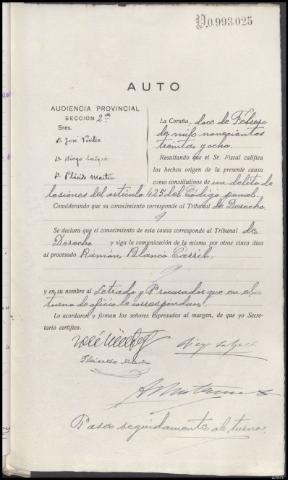 P0.993.025
AUTO
AUDIENCIA PROVINCIAL
SECCIÓN 2ª
Sres.
D. José
D. Diego
D. Plácido
La Coruña, doce de Febrero
de mil novecientos
treinta y ocho
Resultando que el Sr. Fiscal califica
los hechos origen de la presente causa
como constitutivos de un delito de
lesiones del artículo 425 del Código penal.
Considerando que su conocimiento corresponde al Tribunal de Derecho
Se declara que el conocimiento de esta causa corresponde al Tribunal de
Derecho y siga la comunicación de la misma por otros cinco días
al procesado Ramón Blanco
y en su nombre al Letrado y Procurador que en el
turno de oficio le correspondan.
Lo acordaron y firman los señores expresados al margen, de que yo Secretario certifico.
Pasa seguidamente al turno